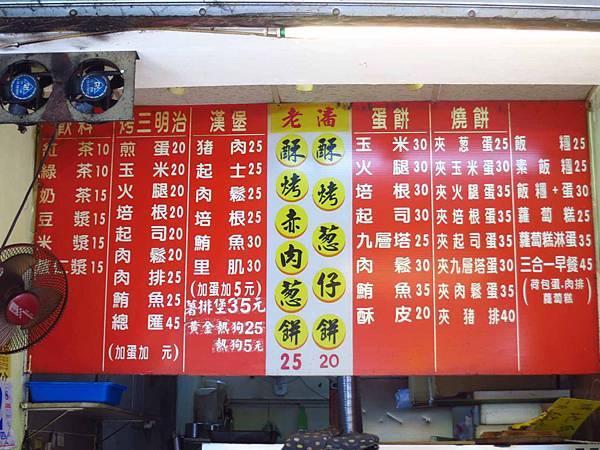 飲料
紅茶10
綠茶10
奶茶15
豆漿15
米漿15
薏仁漿15
烤三明治
煎蛋20
玉米20
火腿20
培根20
起司20
肉鬆20
肉排25
鮪魚25
總匯45
(加蛋加 元)
漢堡
豬肉25
起士25
肉鬆25
培根25
鮪魚30
里肌30
(加蛋加5元)
薯排堡35元
黃金熱狗25
熱狗5元
老潘
酥烤赤肉蔥餅
25
酥烤蔥仔餅
20
蛋餅
玉米30
火腿30
培根30
起司30
九層塔25
肉鬆30
鮪魚35
酥皮20
燒餅
夾蔥蛋25
夾玉米蛋30
夾火腿蛋35
夾培根蛋35
夾起司蛋35
夾九層蛋30
夾肉鬆蛋35
夾豬排40
飯糰25
素飯糰25
飯糰+蛋30
蘿蔔糕25
蘿蔔糕淋蛋35
三合一早餐45
(荷包蛋.肉排
蘿蔔糕)